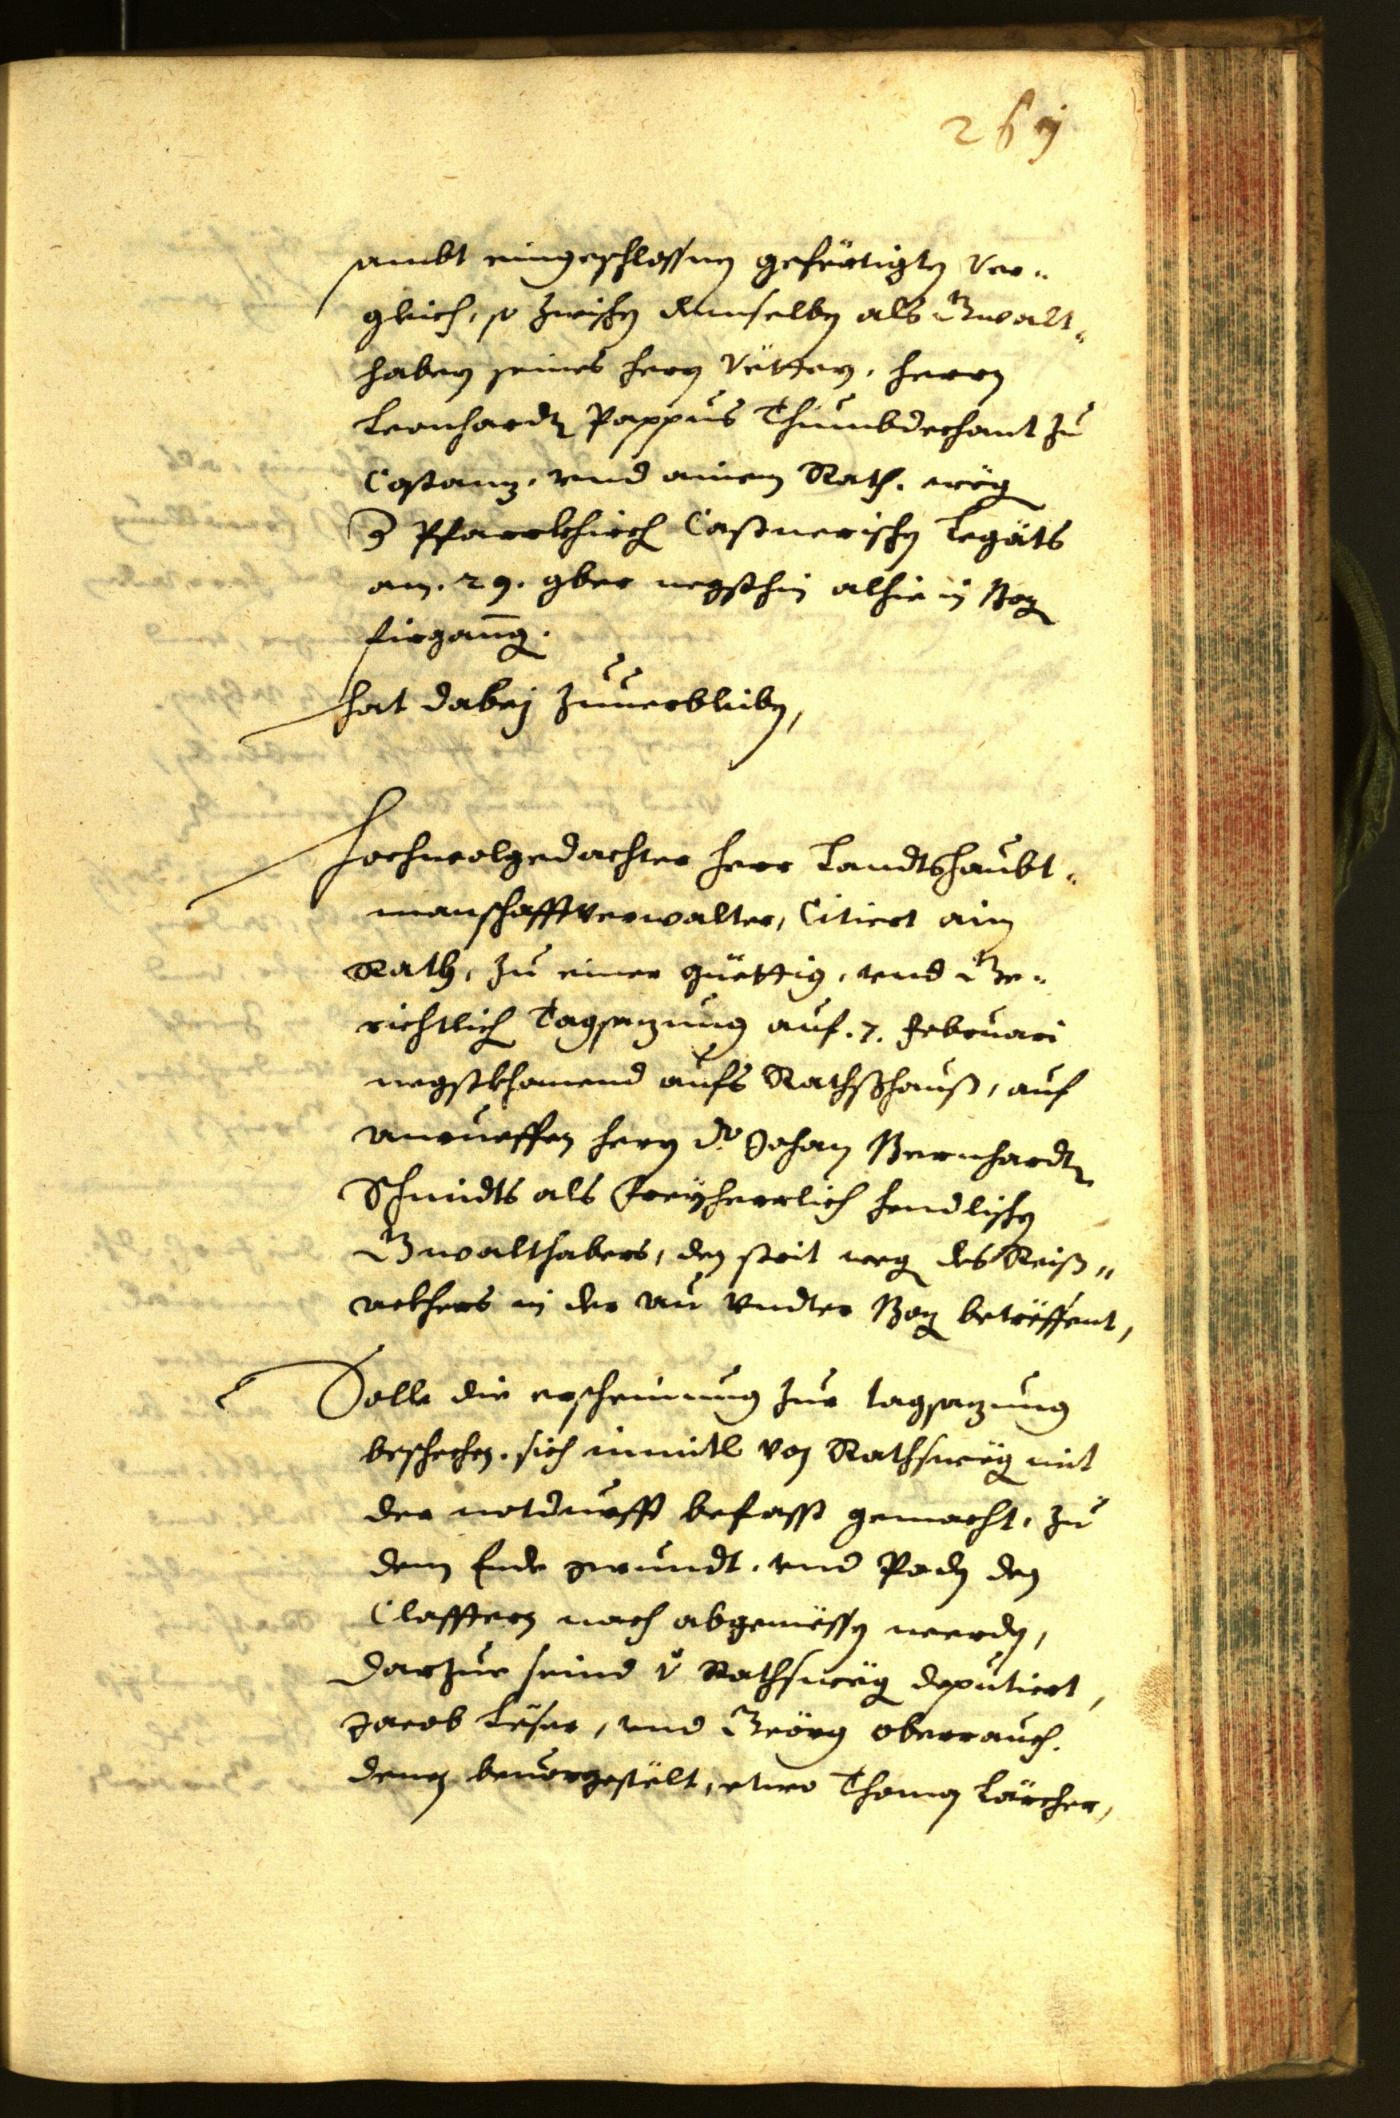 261
sambt eingeschlossnen gefertigten Ver„
gleich, so zwischen demselben als Gwalt„
habern seines herrn Vettern, herrn
Leonhardt Pappus Thumbdechant zu
Costanz, vnd ainem Rath, weg
d Pfarrkhirch Castnerischen Legats
am .29. 9ber negsthin alhie in Boz
fürgang.
hat dabej zuuerbleiben,
Hochwolgedachter herr Landtshaubt„
manschafftverwalter, Citiert ain
Rath, zu einer güettig, vnd Ge„
richtlich Tagsazung auf .7. Februari
negstkhomend aufs Rathshauß, auf
anrueffen herrn dr Johan Bernhardt
Schmidts als freyherrlich hendlischen
Gwalthabers, den strit weg des Reiß„
ackhers in der au vndter Boz betreffent,
Solle die erscheinung zur tagsazung
beschechen, sich inmitl von Rathsweg mit
der notdurfft befasst gemacht, zu
dem Ende grundt, vnd Poden den
Clafftern nach abgemessen werden,
darzue seind v Rathsweg deputiert,
Jacob Leser, vnd Geörg Oberrauch,
denen beuorgestelt, etwo Thoman Lärcher,